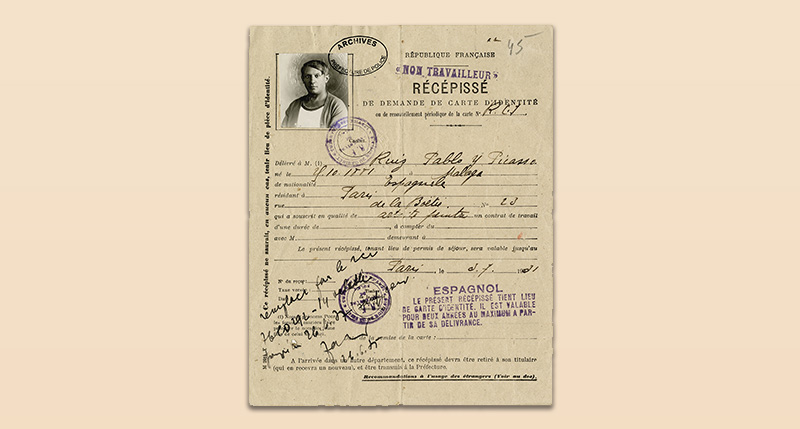 45
ARCHIVES
PRÉFECTURE DE POLICE
RÉPUBLIQUE FRANÇAISE
« NON TRAVAILLEUR »
RÉCÉPISSÉ
DE DEMANDE DE CARTE D'IDENTITÉ
ou de renouvellement périodique de la carte N°
Ce récépissé ne saurait, en aucun cas, tenir lieu de pièce d'identité.
Délivré à M. (1) Ruiz Pablo y Picasso
né le 10.1881 à Malaga
de nationalité Espagnole
résidant à Paris
rue de la Boëtie N° 23
qui a souscrit en qualité de peintre un contrat de travail
d'une durée de , à compter du
avec M. demeurant à
Le présent récépissé, tenant lieu de permis de séjour, sera valable jusqu'au
Paris, le 3.7 1931
N° du reçu
ESPAGNOL
LE PRÉSENT RÉCÉPISSÉ TIENT LIEU
DE CARTE D'IDENTITÉ. IL EST VALABLE
POUR DEUX ANNÉES AU MAXIMUM A PAR-
TIR DE SA DÉLIVRANCE.
de la remise de la carte :
A l'arrivée dans un autre département, ce récépissé devra être retiré à son titulaire
(qui en recevra un nouveau), et être transmis à la Préfecture.
Recommandations à l'usage des étrangers (Voir au dos).